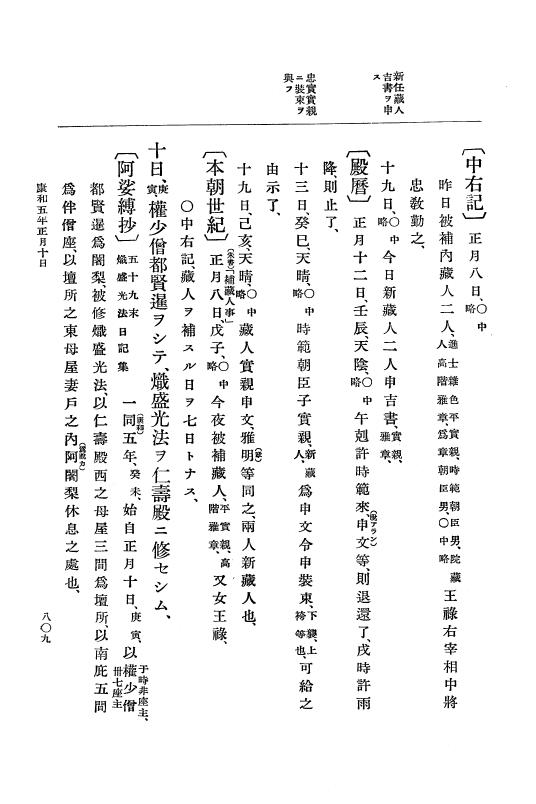 新任藏人
吉書ヲ申
ス
忠實實親
ニ裝束ヲ
與フ
〔中右記〕正月八日、〇中略
昨日被補內藏人二人、進士雜色平實親、時範朝臣男、院藏人高階雅章、爲章朝臣男、〇中略王祿右宰相中將
忠敎勤之、
十九日、〇中略今日新藏人二人申吉書、實親、雅章、
〔殿曆〕正月十二日、壬辰、天陰、〇中略午剋許時範來、申文等、則退還了、戌時許雨
降、則止了、
十三日、癸巳、天晴、〇中略時範朝臣子實親、新藏人、爲申文令申裝束、下襲、上袴等也、可給之
由示了、
十九日、己亥、天晴、〇中略藏人實親申文、雅明等同之、兩人新藏人也、
〔本朝世紀〕正月八日、戊子、〇中略今夜被補藏人、平實親、高階雅章、又女王祿、
〇中右記、藏人ヲ補スル日ヲ七日トナス、
十日、庚寅、權少僧都賢暹ヲシテ、熾盛光法ヲ仁壽殿ニ修セシム、
〔阿娑縛抄〕五十九末熾盛光法日記集一同五年、癸未、始自正月十日、庚寅、以權少僧于時非座主、卅七座主
都賢暹爲阿闍梨、被修熾盛光法、以仁壽殿西之母屋三間爲壇所、以南庇五間
爲伴僧座、以壇所之東母屋妻戶之內、阿闍梨休息之處也、
康和五年正月十日
八〇九